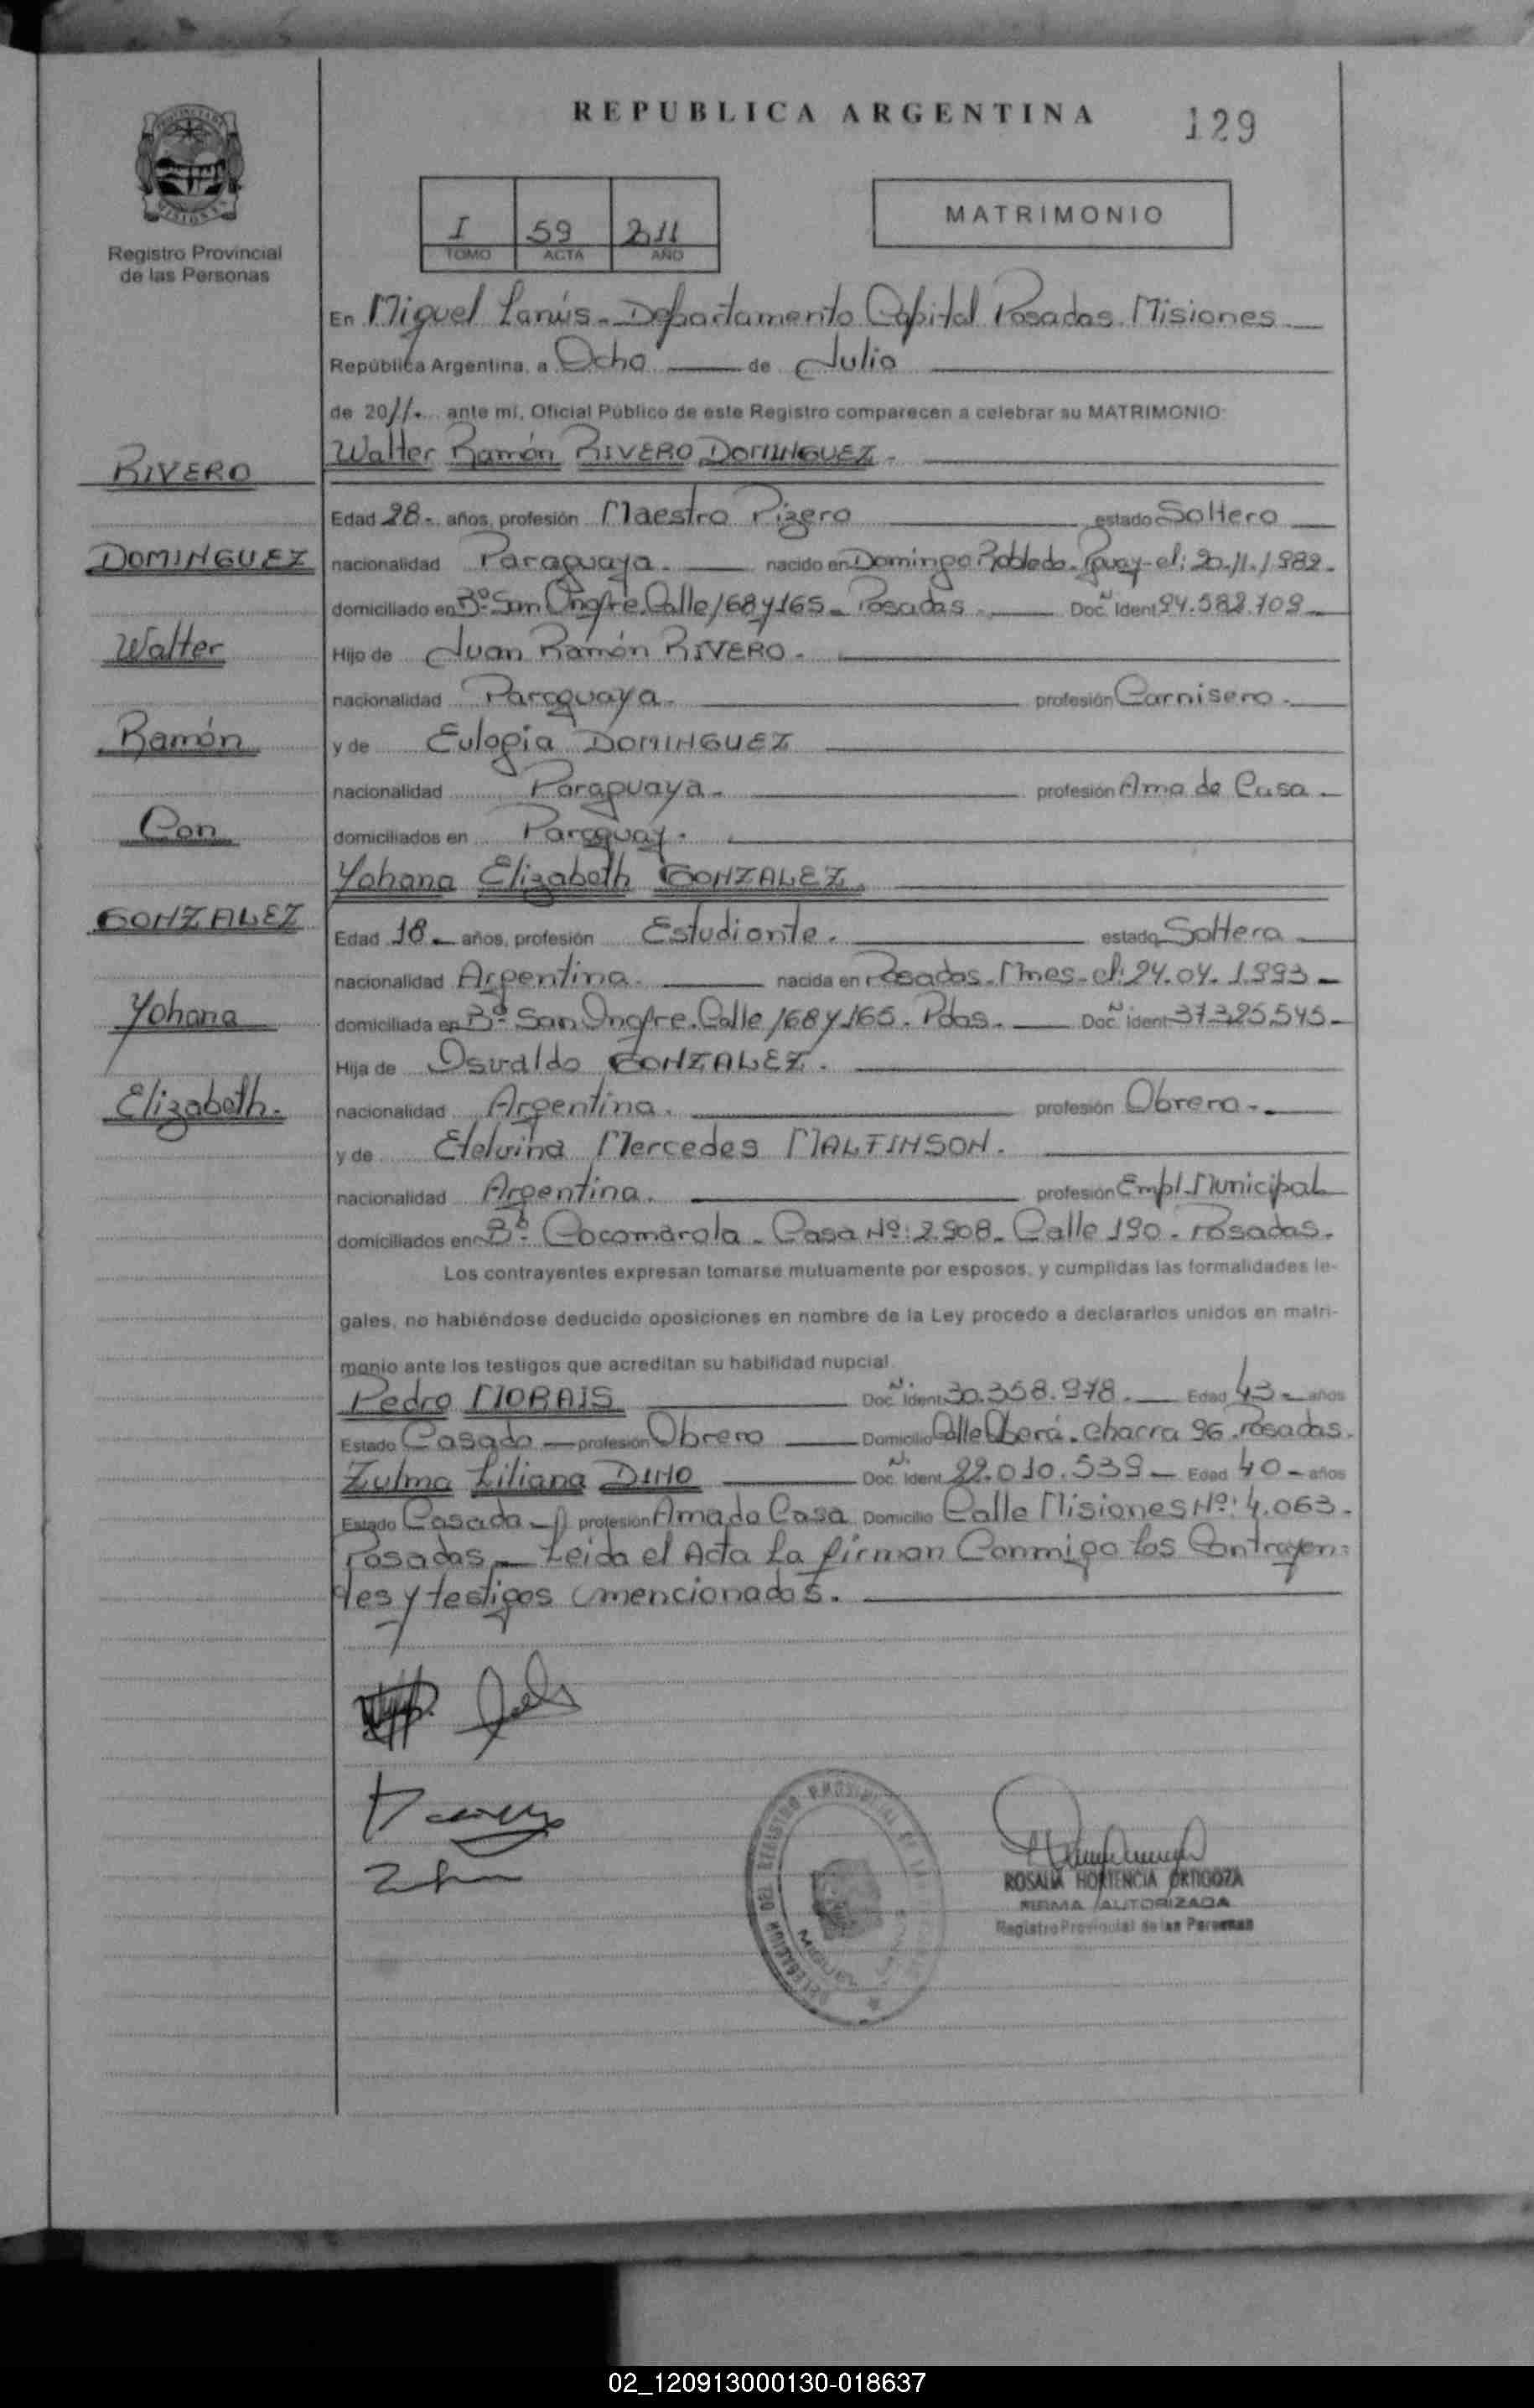 REPUBLICA ARGENTINA
129
I 59 2011
TOMO ACTA AÑO
MATRIMONIO
Registro Provincial
de las Personas
En Miguel Lanús - Departamento Capital Posadas Misiones
República Argentina, a Ocho de Julio
de 2011. ante mi, Oficial Público de este Registro comparecen a celebrar su MATRIMONIO:
Walter Ramón RIVERO DOMINGUEZ -
RIVERO
Edad 28 - años, profesión Maestro Pizero estado Soltero
DOMINGUEZ
nacionalidad Paraguaya. nacido en Domingo Robledo - Pguay - el: 20.11.1982.
domiciliado en Bº San Onofre. Calle 168 y 165 - Posadas - Doc. Nº Ident 94.582.709
Walter
Hijo de Juan Ramón RIVERO -
nacionalidad Paraguaya - profesión Carnisero -
Ramón
y de Eulogia DOMINGUEZ
nacionalidad Paraguaya - profesión Ama de Casa -
Con
domiciliados en Paraguay.
Yohana Elizabeth GONZALEZ.
GONZALEZ
Edad 18 - años, profesión Estudiante. estado Soltera
nacionalidad Argentina. nacida en Posadas - Mnes - el: 24.04.1993 -
Yohana
domiciliada en Bº San Onofre. Calle 168 y 165. Pdas. Doc. Nº Ident 37.325.545 -
Hija de Osvaldo GONZALEZ.
Elizabeth.
nacionalidad Argentina. profesión Obrero -
y de Etelvina Mercedes MALFINSON.
nacionalidad Argentina. profesión Empl. Municipal
domiciliados en Bº Cocomarola - Casa Nº: 2.908 - Calle 190 - Posadas.
Los contrayentes expresan tomarse mutuamente por esposos, y cumplidas las formalidades le-
gales, no habiéndose deducido oposiciones en nombre de la Ley procedo a declararlos unidos en matri-
monio ante los testigos que acreditan su habilidad nupcial.
Pedro MORAIS Doc. Nº Ident 30.358.978. Edad 43 - años
Estado Casado profesión Obrero Domicilio Calle Oberá. Chacra 96. Posadas.
Zulma Liliana DINO Doc. Nº Ident 22.010.539 - Edad 40 - años
Estado Casada profesión Ama da Casa Domicilio Calle Misiones Nº: 4.063.
Posadas - Leida el Acta la firman Conmigo los Contrayen-
tes y testigos mencionados.
ROSALIA HORTENCIA ORTIGOZA
FIRMA AUTORIZADA
Registro Provincial de las Personas
02_120913000130-018637